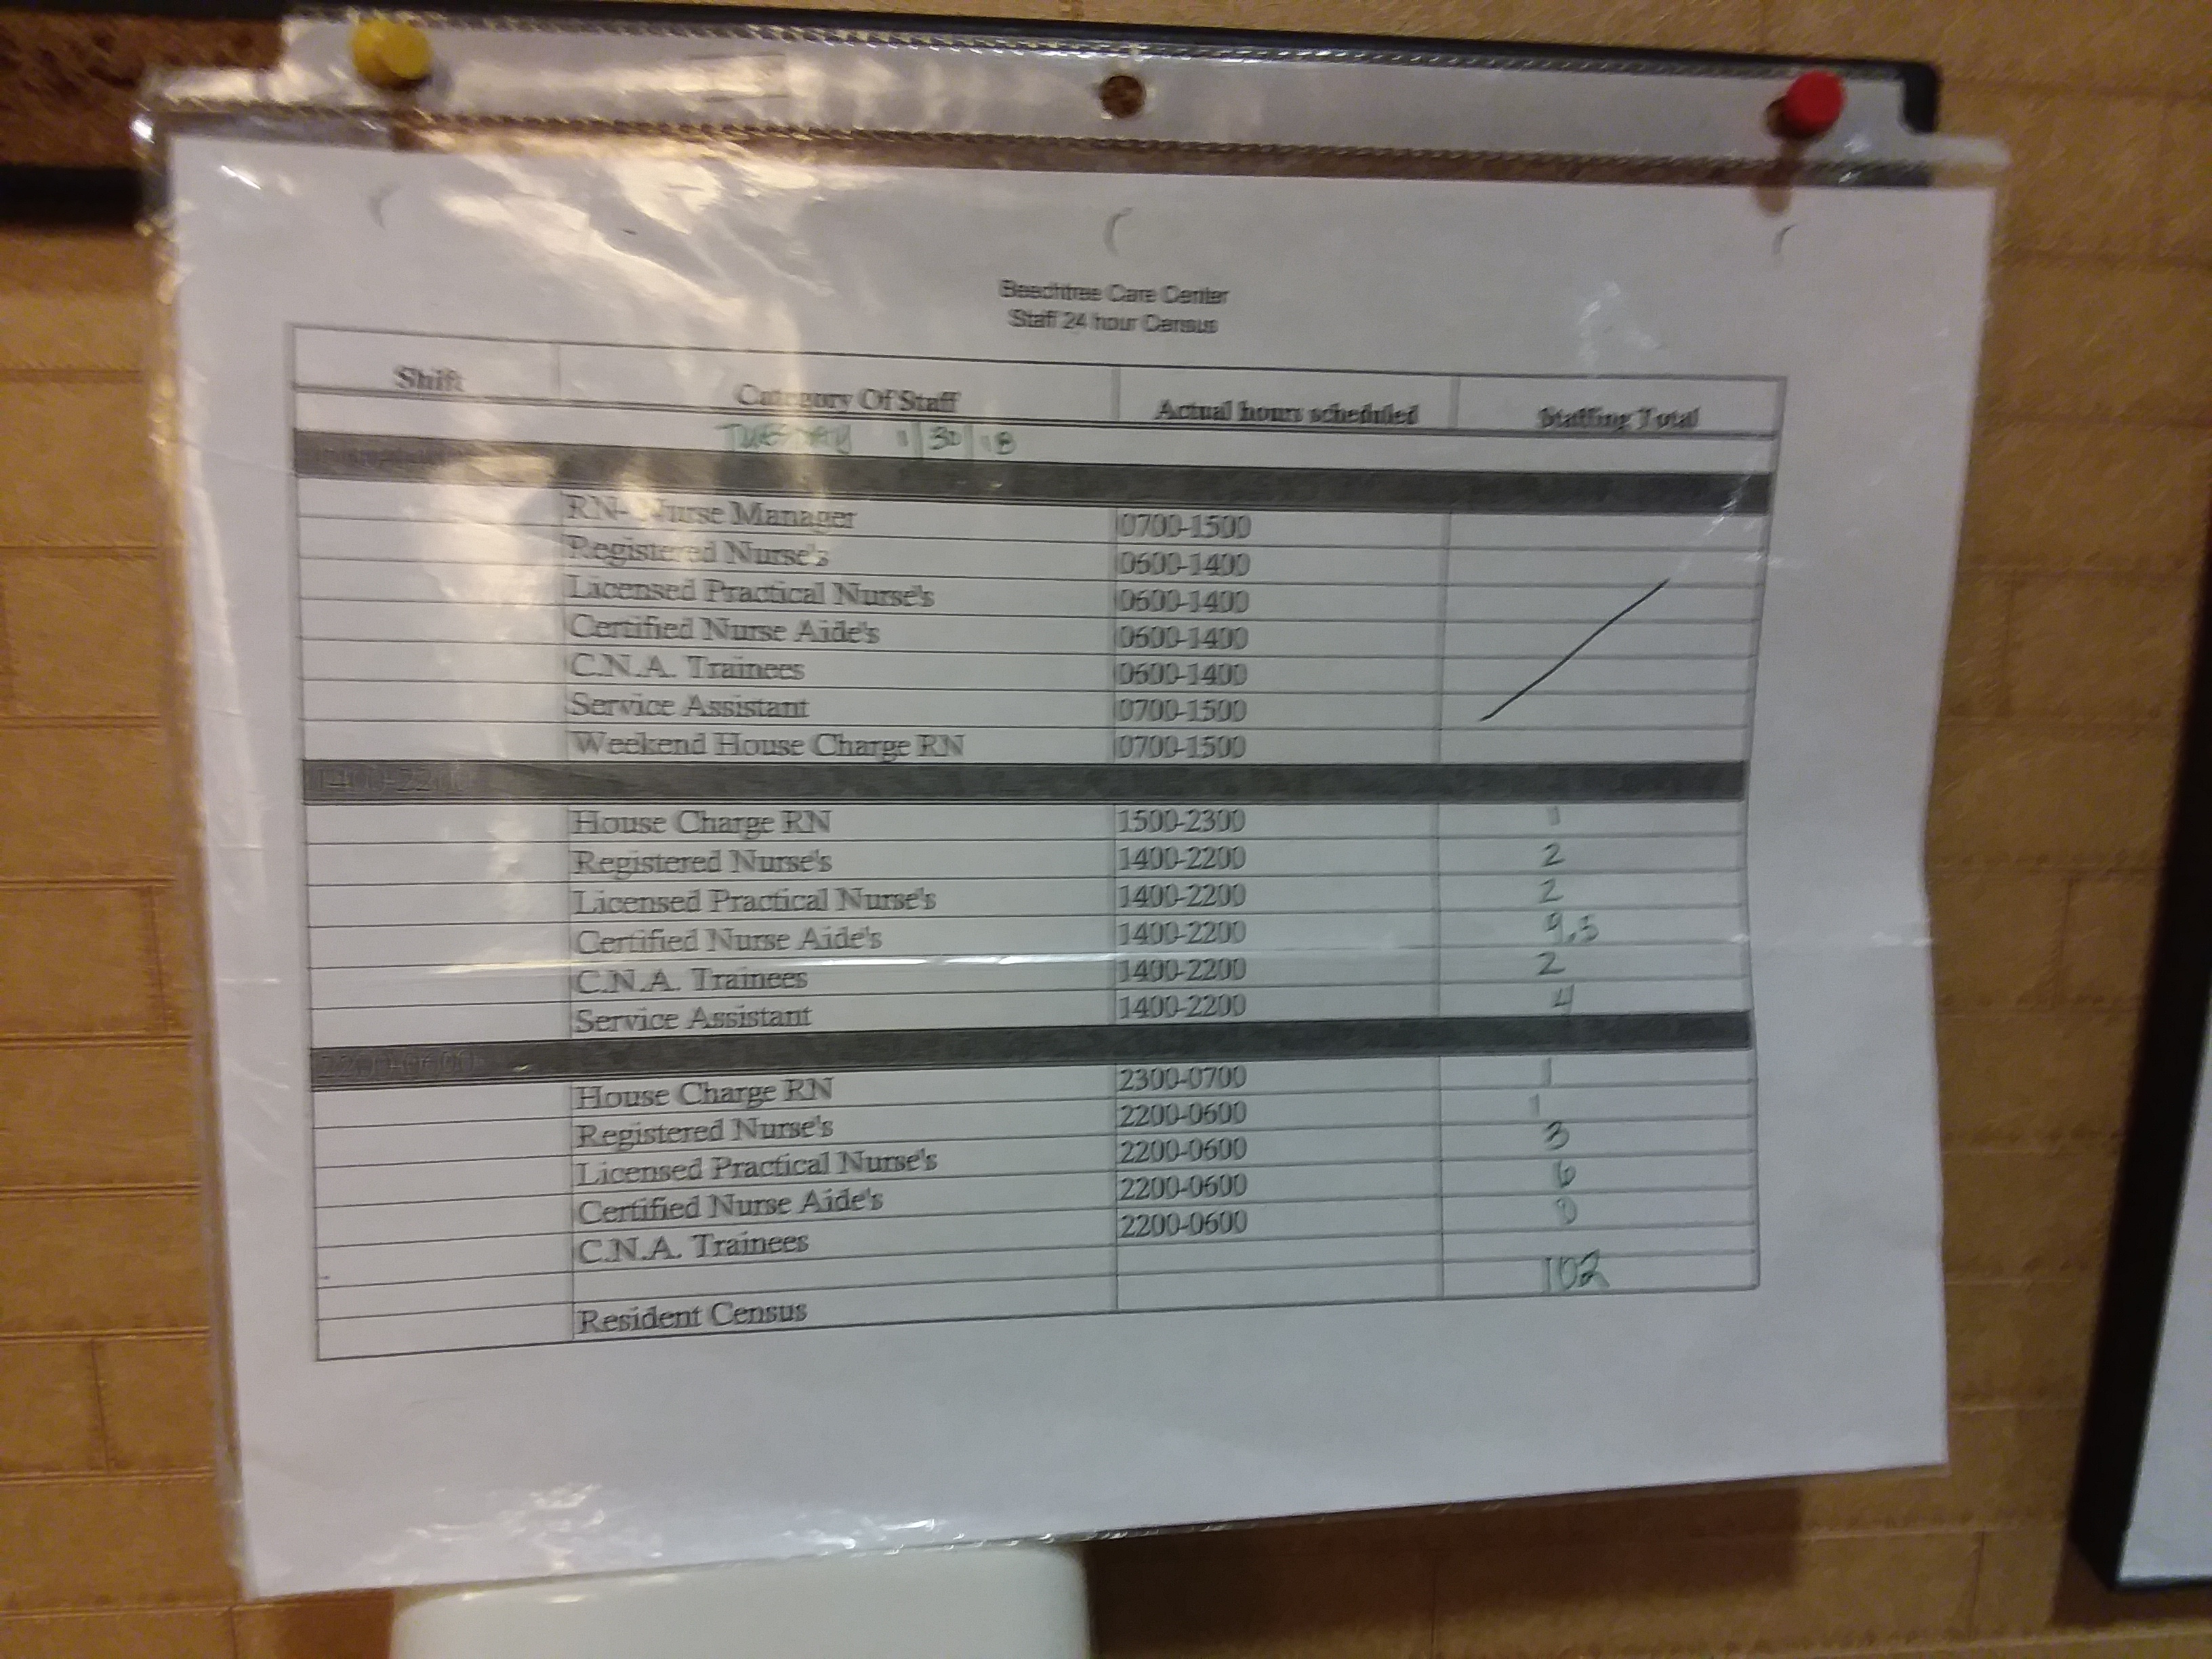 Beechtree Care Center
Staff 24 hour Census
Shift Category Of Staff Actual hours scheduled Staffing Total
TUESDAY 1/30/18
RN- Nurse Manager 0700-1500
Registered Nurse's 0600-1400
Licensed Practical Nurse's 0600-1400
Certified Nurse Aide's 0600-1400
C.N.A. Trainees 0600-1400
Service Assistant 0700-1500
Weekend House Charge RN 0700-1500
1400-2200
House Charge RN 1500-2300 1
Registered Nurse's 1400-2200 2
Licensed Practical Nurse's 1400-2200 2
Certified Nurse Aide's 1400-2200 9.5
C.N.A. Trainees 1400-2200 2
Service Assistant 1400-2200 4
2200-0600
House Charge RN 2300-0700 1
Registered Nurse's 2200-0600 1
Licensed Practical Nurse's 2200-0600 3
Certified Nurse Aide's 2200-0600 6
C.N.A. Trainees 2200-0600 0
Resident Census 102